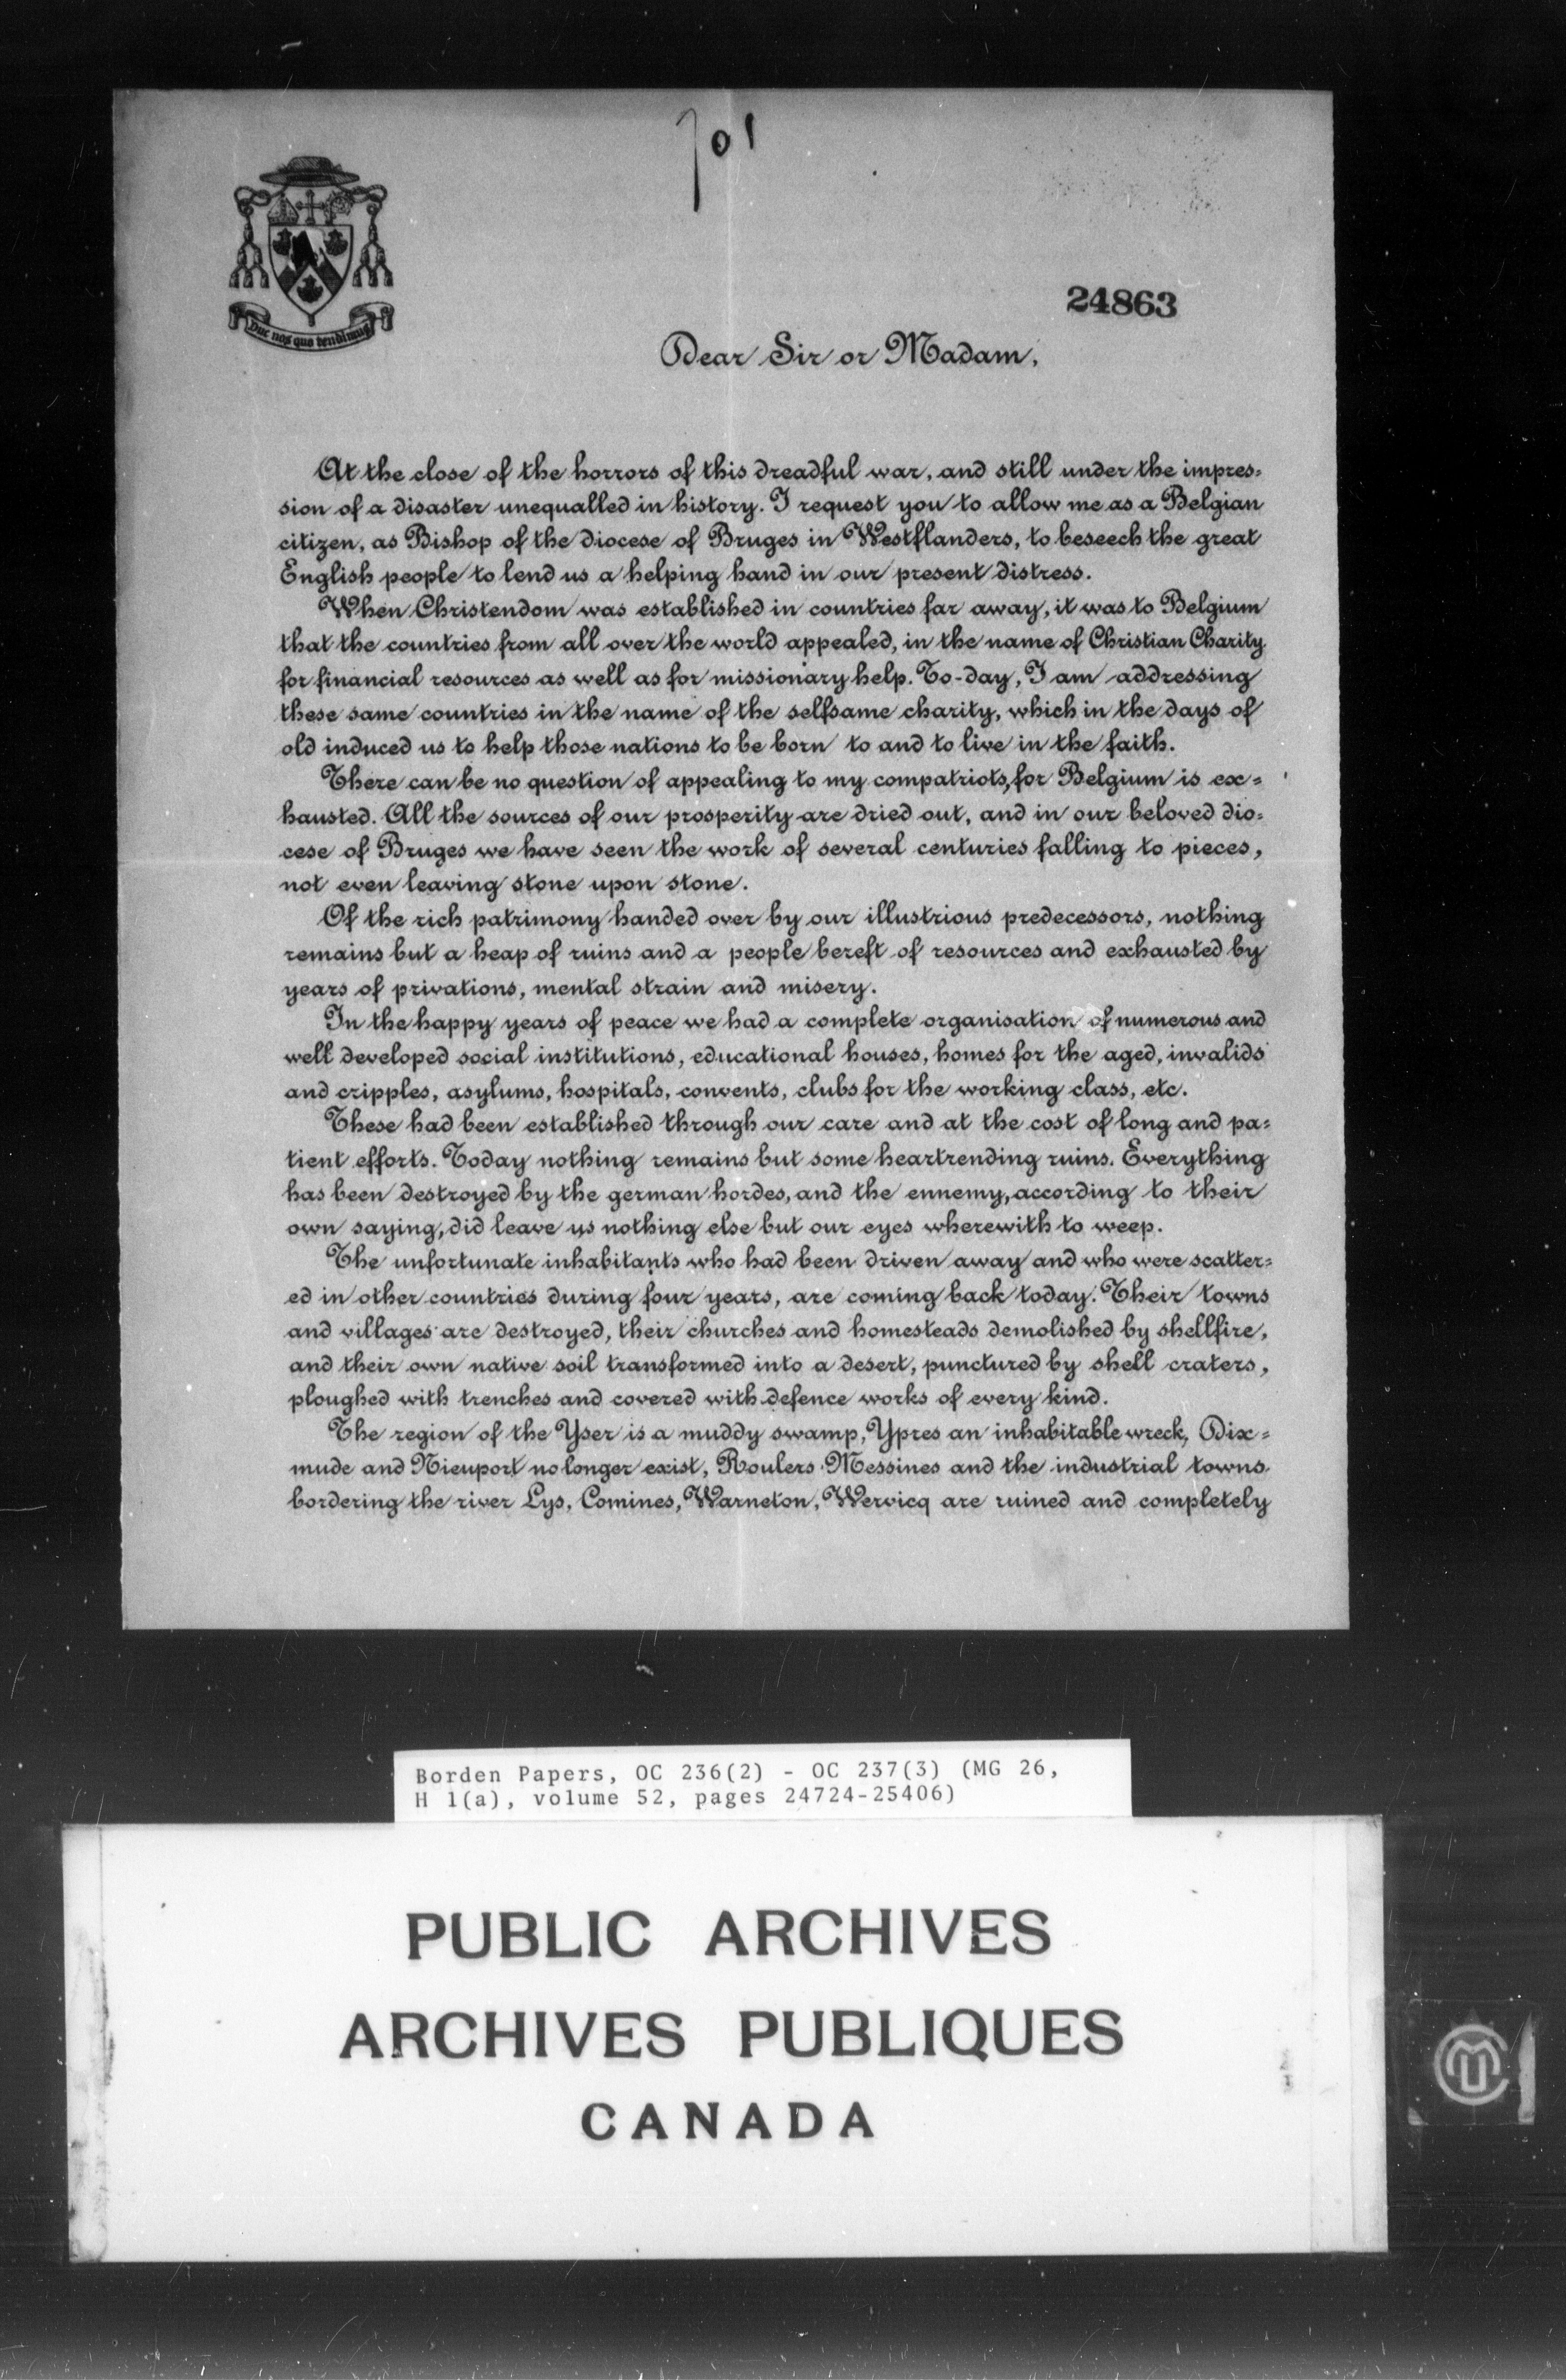 701
Duc nos quo tendimus
24863
Dear Sir or Madam,
At the close of the horrors of this dreadful war, and still under the impres-
sion of a disaster unequalled in history. I request you to allow me as a Belgian
citizen, as Bishop of the diocese of Bruges in Westflanders, to beseech the great
English people to lend us a helping hand in our present distress.
When Christendom was established in countries far away, it was to Belgium
that the countries from all over the world appealed, in the name of Christian Charity
for financial resources as well as for missionary help. To-day, I am addressing
these same countries in the name of the selfsame charity, which in the days of
old induced us to help those nations to be born to and to live in the faith.
There can be no question of appealing to my compatriots, for Belgium is ex-
hausted. All the sources of our prosperity are dried out, and in our beloved dio-
cese of Bruges we have seen the work of several centuries falling to pieces,
not even leaving stone upon stone.
Of the rich patrimony handed over by our illustrious predecessors, nothing
remains but a heap of ruins and a people bereft of resources and exhausted by
years of privations, mental strain and misery.
In the happy years of peace we had a complete organisation of numerous and
well developed social institutions, educational houses, homes for the aged, invalids
and cripples, asylums, hospitals, convents, clubs for the working class, etc.
These had been established through our care and at the cost of long and pa-
tient efforts. Today nothing remains but some heartrending ruins. Everything
has been destroyed by the german hordes, and the ennemy, according to their
own saying, did leave us nothing else but our eyes wherewith to weep.
The unfortunate inhabitants who had been driven away and who were scatter-
ed in other countries during four years, are coming back today. Their towns
and villages are destroyed, their churches and homesteads demolished by shellfire,
and their own native soil transformed into a desert, punctured by shell craters,
ploughed with trenches and covered with defence works of every kind.
The region of the Yser is a muddy swamp, Ypres an inhabitable wreck, Dix-
mude and Nieuport no longer exist, Roulers Messines and the industrial towns
bordering the river Lys, Comines, Warneton, Wervicq are ruined and completely
Borden Papers, OC 236(2) - OC 237(3) (MG 26,
H 1(a), volume 52, pages 24724-25406)
PUBLIC ARCHIVES
ARCHIVES PUBLIQUES
CANADA